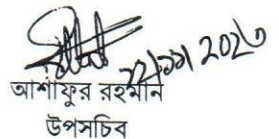 ২২/১১/২০২৩
আশাফুর রহমান
উপসচিব